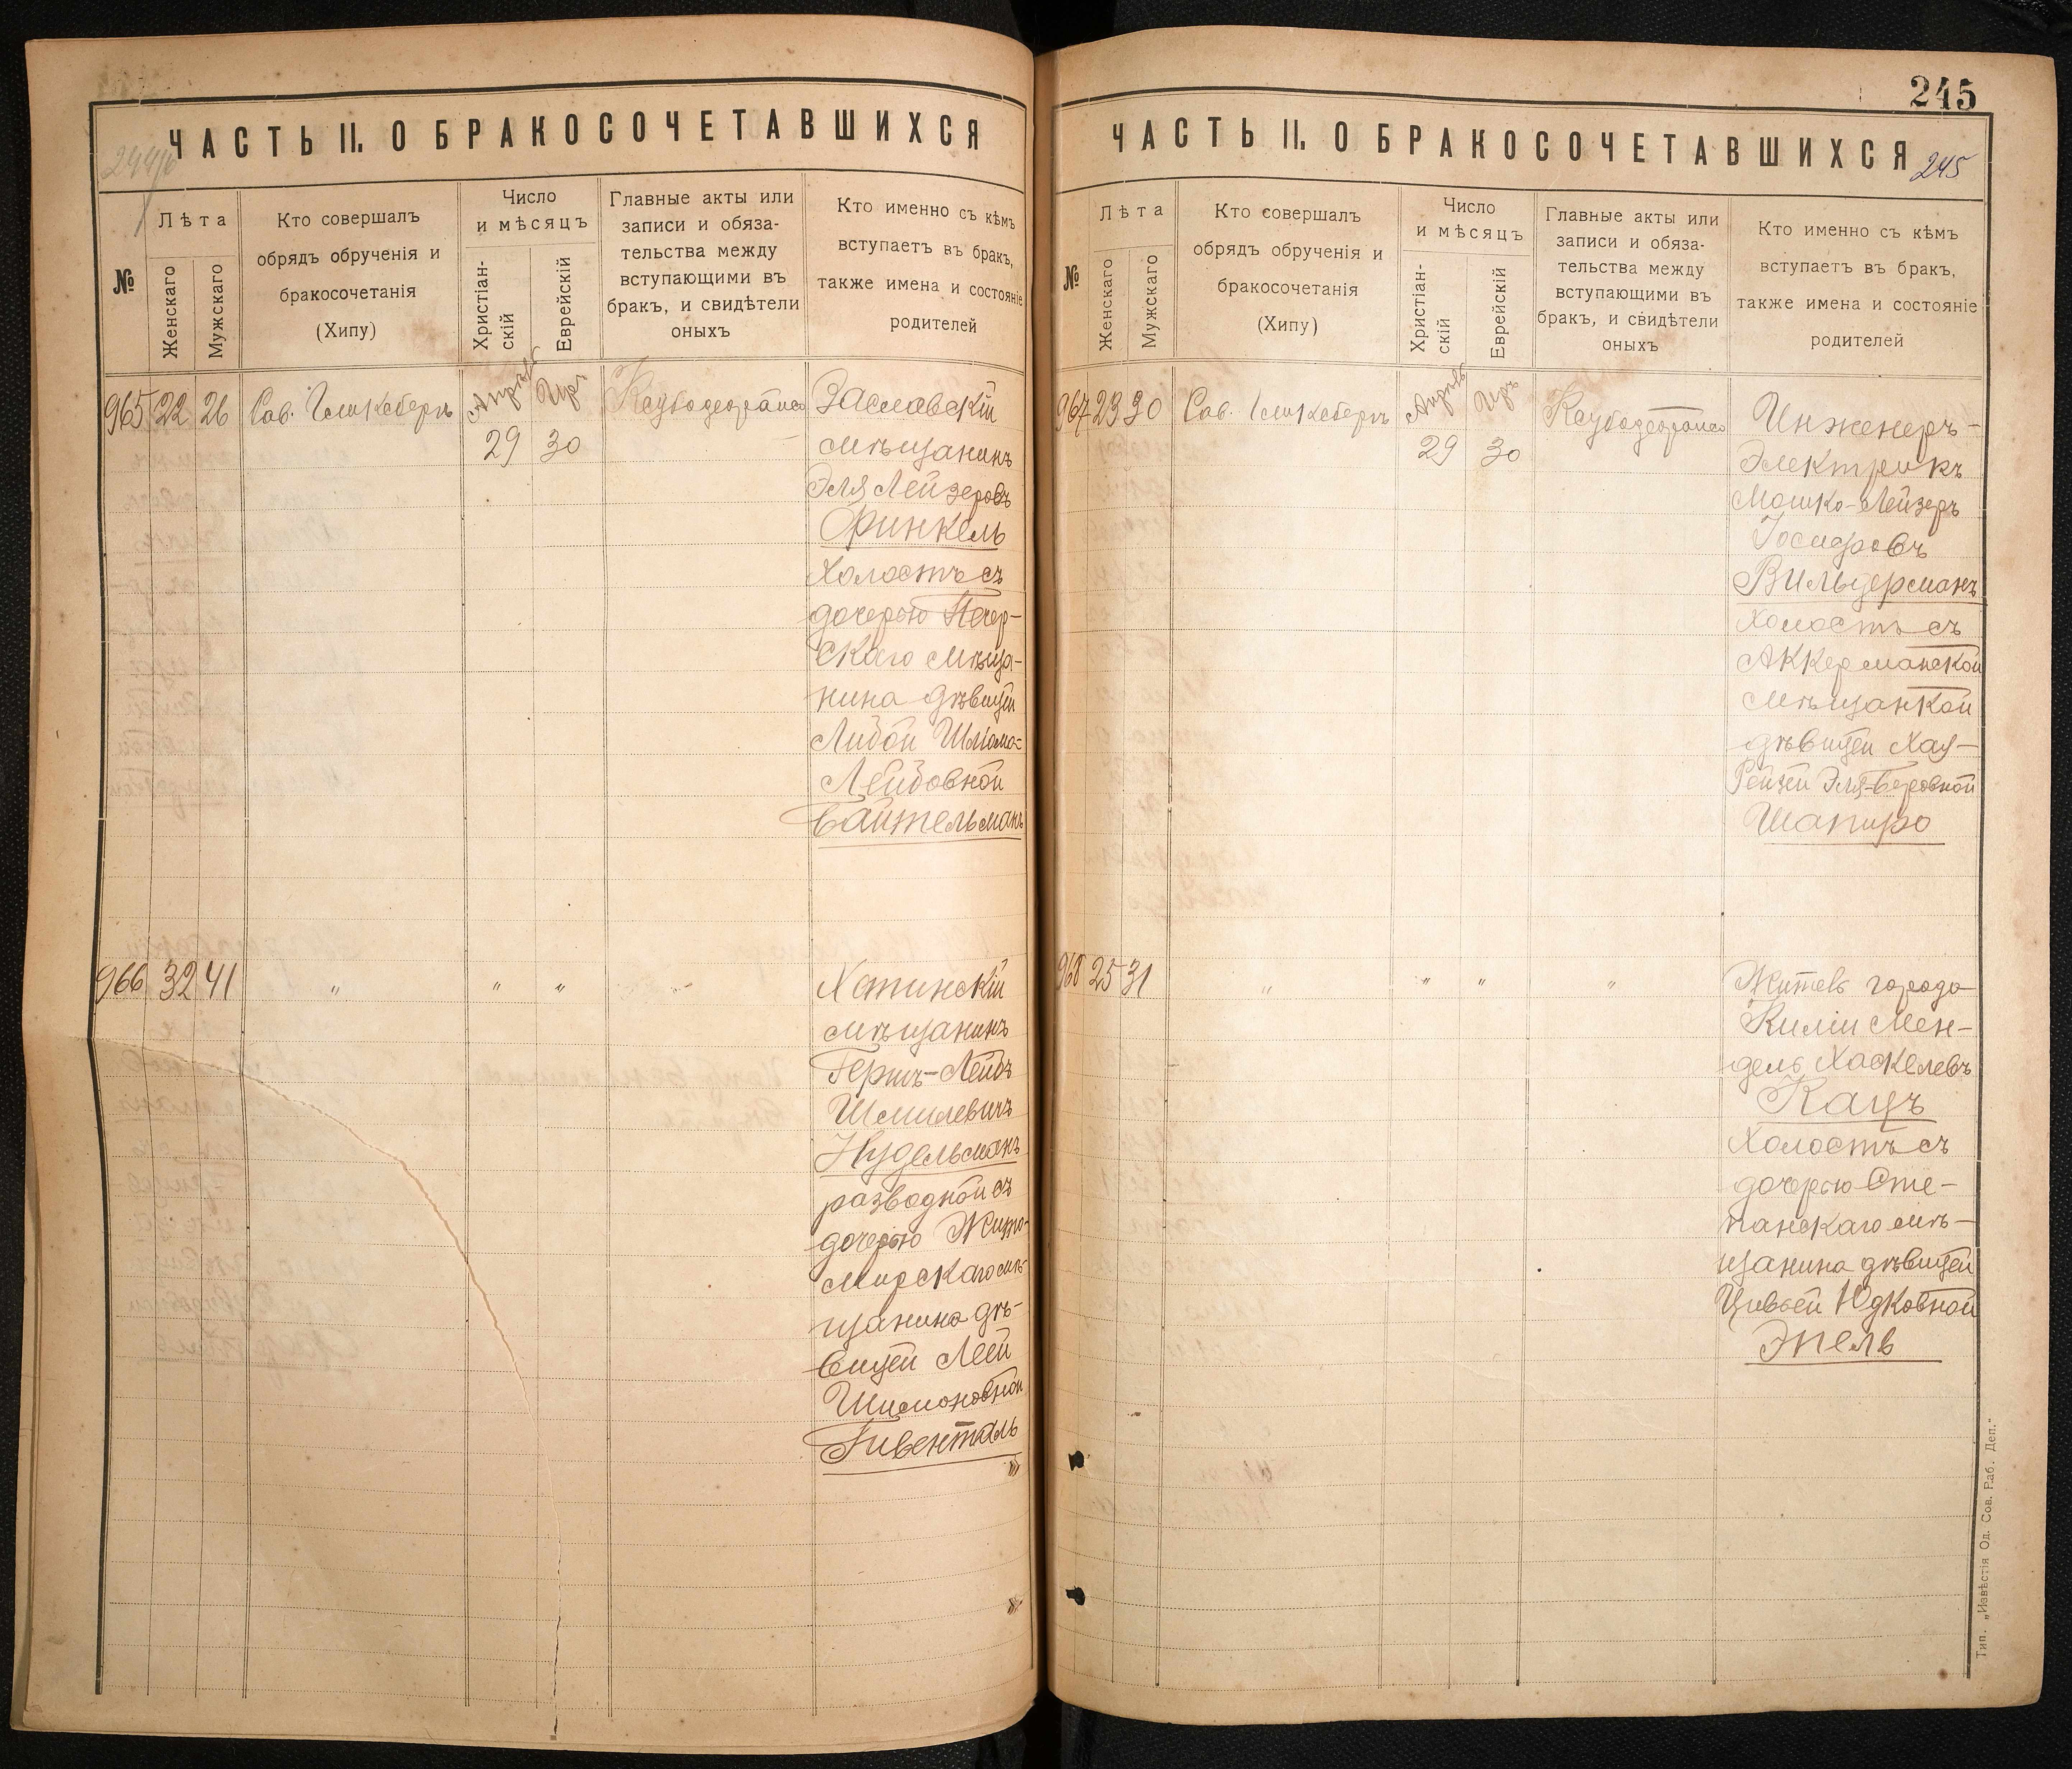 ЧАСТЬ II. О БРАКОСОЧЕТАВШИХСЯ
№
Лѣта
Женскаго
Мужскаго
Кто совершалъ
обрядъ обрученія и
бракосочетанія
(Хипу)
Число
и мѣсяцъ
Христіан-
скій
Еврейскій
Главные акты или
записи и обяза-
тельства между
вступающими въ
бракъ, и свидѣтели
оныхъ
Кто именно съ кѣмъ
вступаетъ въ бракъ,
также имена и состояніе
родителей
965 22 26
Апрѣль
29 30
Заславскій
мѣщанинъ
Эля Лейзеровъ
Финкель
холостъ съ
дочерью Печер-
скаго мѣща-
нина дѣвицей
Либой Шліома-
Лейбовной
Байтельманъ
966 32 41 " " "
Хотинскій
мѣщанинъ
Гершъ-Лейбъ
Шмилевичъ
Нудельманъ
разводной съ
дочерью Жито-
мирскаго мѣ-
щанина дѣ-
вицей Леей
Шимоновной
Гивенталь
245
ЧАСТЬ II. О БРАКОСОЧЕТАВШИХСЯ
245
№
Лѣта
Женскаго
Мужскаго
Кто совершалъ
обрядъ обрученія и
бракосочетанія
(Хипу)
Число
и мѣсяцъ
Христіан-
скій
Еврейскій
Главные акты или
записи и обяза-
тельства между
вступающими въ
бракъ, и свидѣтели
оныхъ
Кто именно съ кѣмъ
вступаетъ въ бракъ,
также имена и состояніе
родителей
967 23 30
Апрѣль
29 30
Инженеръ-
Электрикъ
Мошко-Лейзеръ
Вильдерманъ
холостъ съ
Аккерманской
мѣщанкой
дѣвицей Хая-
Рейзей Эля-Беровной
Шапиро
968 25 31 " " " "
Житель города
Киліи Мен-
дель Хаскелевъ
Кацъ
холостъ съ
дочерью Сте-
панскаго мѣ-
щанина дѣвицей
Цивьей Юдковной
Эпель
Тип. „Извѣстія Од. Сов. Раб. Деп."